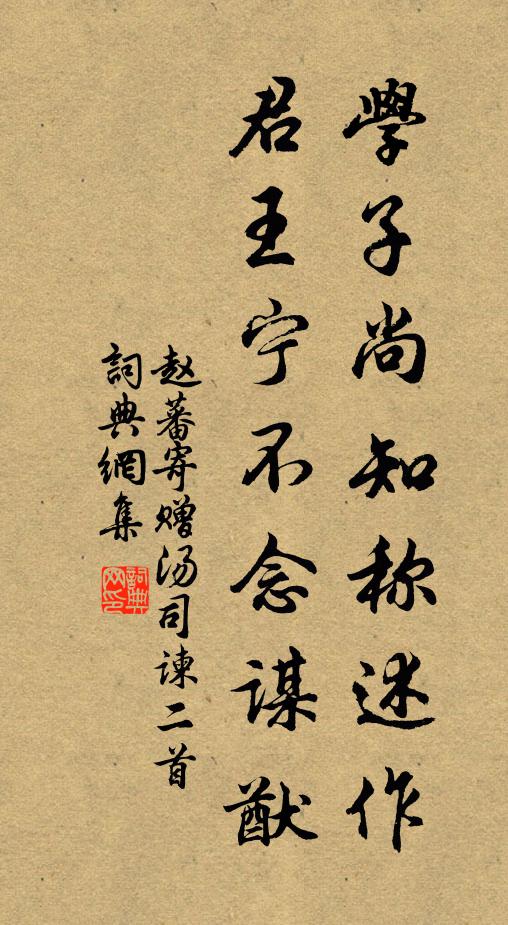 學子尚知称述作
君王宁不念謀猷
赵蕃寄赠汤司諫二首
詞典網集
詞典网印